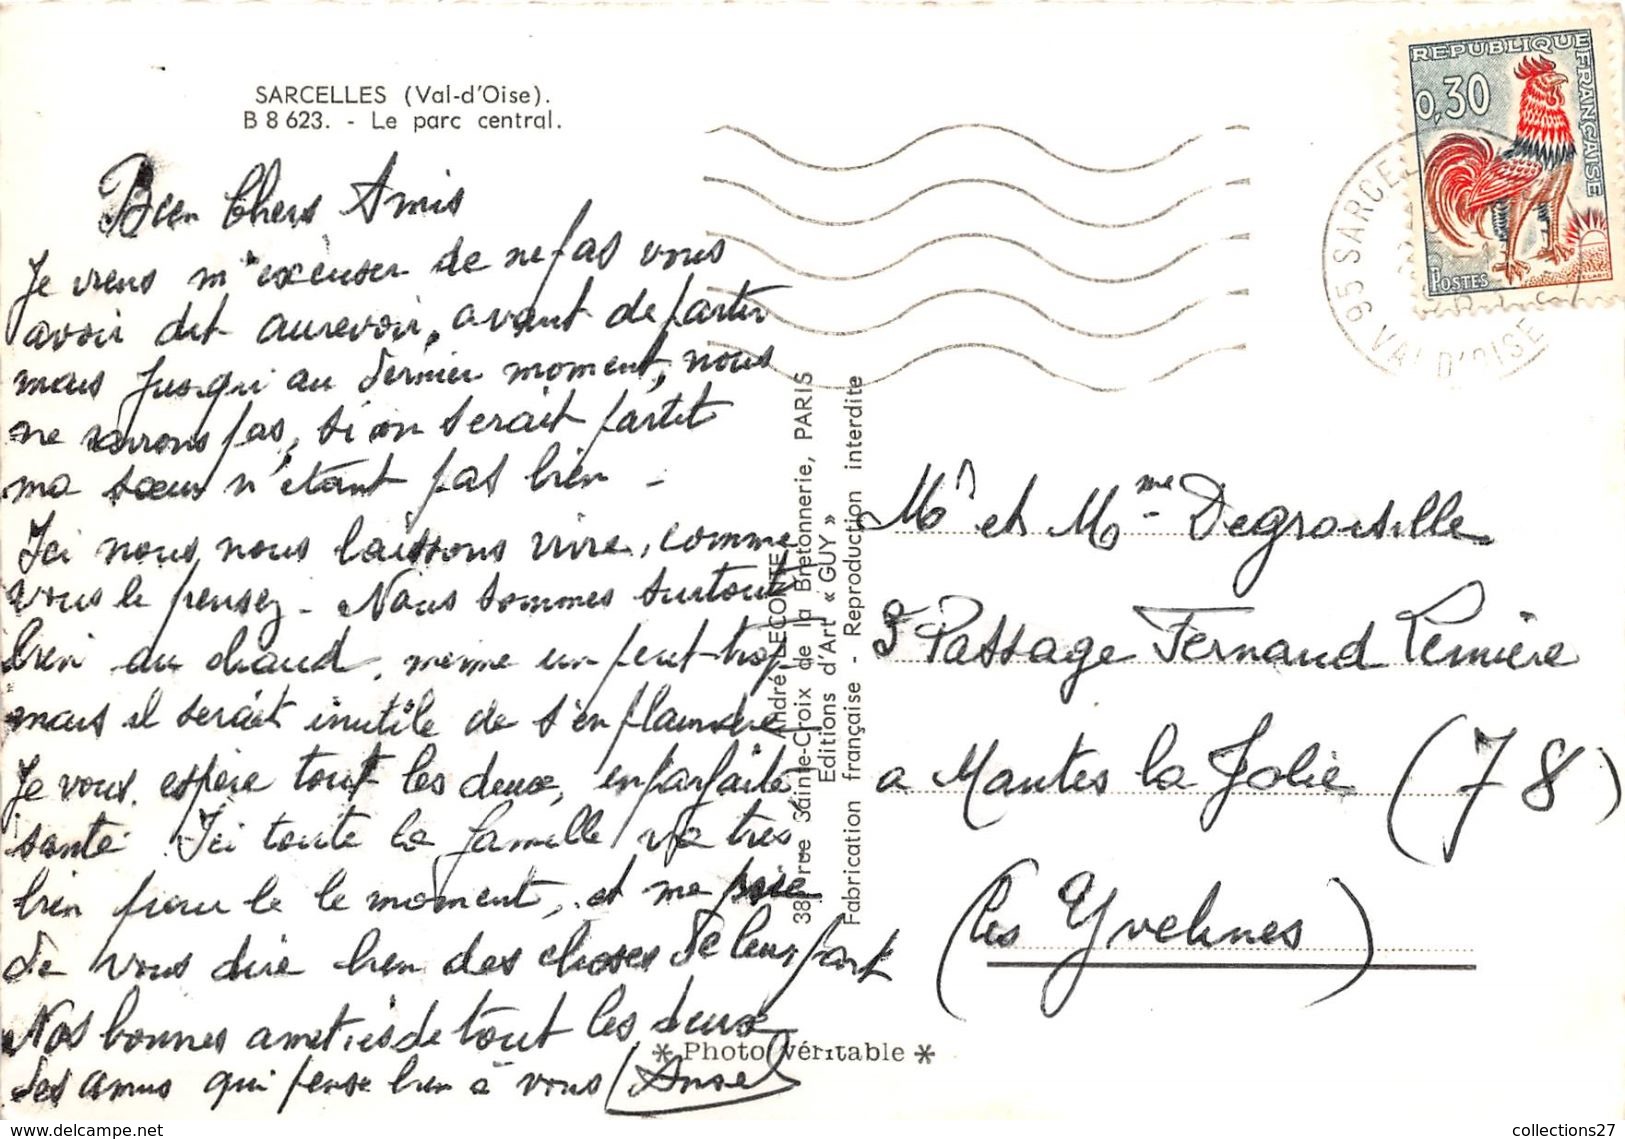 SARCELLES (Val-d'Oise).
B 8 623. - Le parc central.
Bien Chers Amis
Je viens m'excuser de ne pas vous
avoir dit aurevoir, avant de partir
mais jusqu'i au dernier moment, nous
ne savions pas, si on serait partit
ma sœur n'étant pas bien -
Ici nous nous laissons vivre, comme
vous le pensez - Nous sommes surtout
bien au chaud, meme un peut trop
mais il serait inutile de s'en plaindre
Je vous espère tout les deux, en parfaite
santé. Ici toute la famille va très
bien pour le le moment, et me prie
de vous dire bien des choses de leur part
Nos bonnes amitiés de tout les deux
des amis qui pense bien à vous Ansel
REPUBLIQUE FRANÇAISE
0,30
POSTES
95 SARCEL
VAL D'OISE
André LECONTE
38, rue Sainte-Croix de la Bretonnerie, PARIS
Editions d'Art « GUY »
Fabrication française - Reproduction interdite
Mr et Mme Degroisille
Passage Fernand Lemière
a Mantes la Jolie (78)
(les Yvelines)
* Photo véritable *
collections27
www.delcampe.net